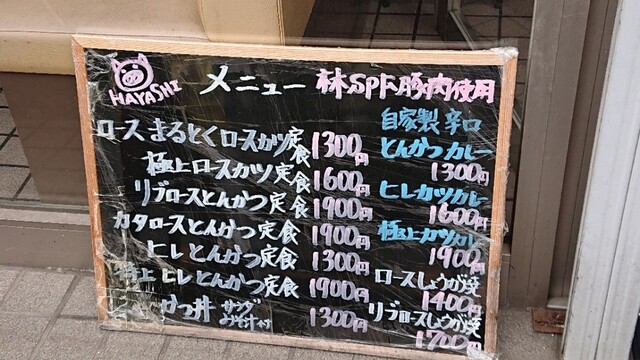 HAYASHI
メニュー
林SPF豚肉使用
ロース まるとくロースカツ定食 1300円
極上ロースカツ定食 1600円
リブロースとんかつ定食 1900円
カタロースとんかつ定食 1900円
ヒレとんかつ定食 1300円
特上ヒレとんかつ定食 1900円
かつ丼 サラダ みそ汁付 1300円
自家製辛口
とんかつカレー
1300円
ヒレカツカレー
1600円
極上カツカレー
1900円
ロースしょうが焼
1400円
リブロースしょうが焼
1700円